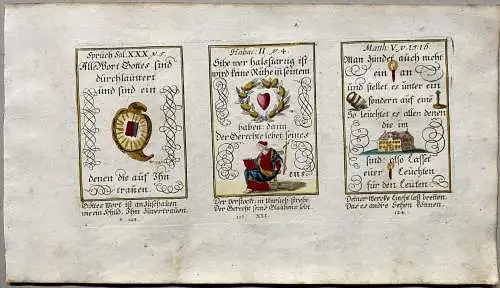 Sprüch Sal. XXX v. 5.
Alle Wort Gottes sind
durchläutert
und sind ein
denen die auf Ihn
trauen.
Gottes Wort ist anzuschauen
wie ein Schild. Ihm zuvertrauen.
Habac: II v. 4.
Sihe wer halsstarrig ist
wird keine Ruhe in seinem
haben: dann
Der Gerechte lebet seines
ens.
Der Verstockt in
Der Gerecht seins Glaubens lebt.
XXI.
Matth: V. v. 15. 16.
Man zündet auch nicht
ein an
und stellet es unter ein
sondern auf eine
So leuchtet es allen denen
die im
sind: also Lasset
euer Leuchten
für den Leuten
Deiner Wercke Liecht laß brennen.
Das es andre Sehen können.
124.